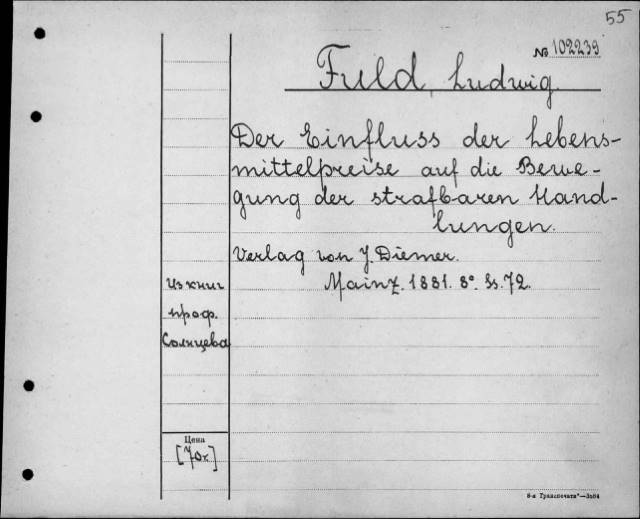 55
№ 102239
Fuld, Ludwig.
Der Einfluss der Lebens-
mittelpreise auf die Bewe-
gung der strafbaren Hand-
lungen.
Verlag von J. Diemer.
Mainz. 1881. 8°. Ss. 72.
Из книг
проф.
Солнцева
Цена
[70к]
8-я Транспечати"—3564